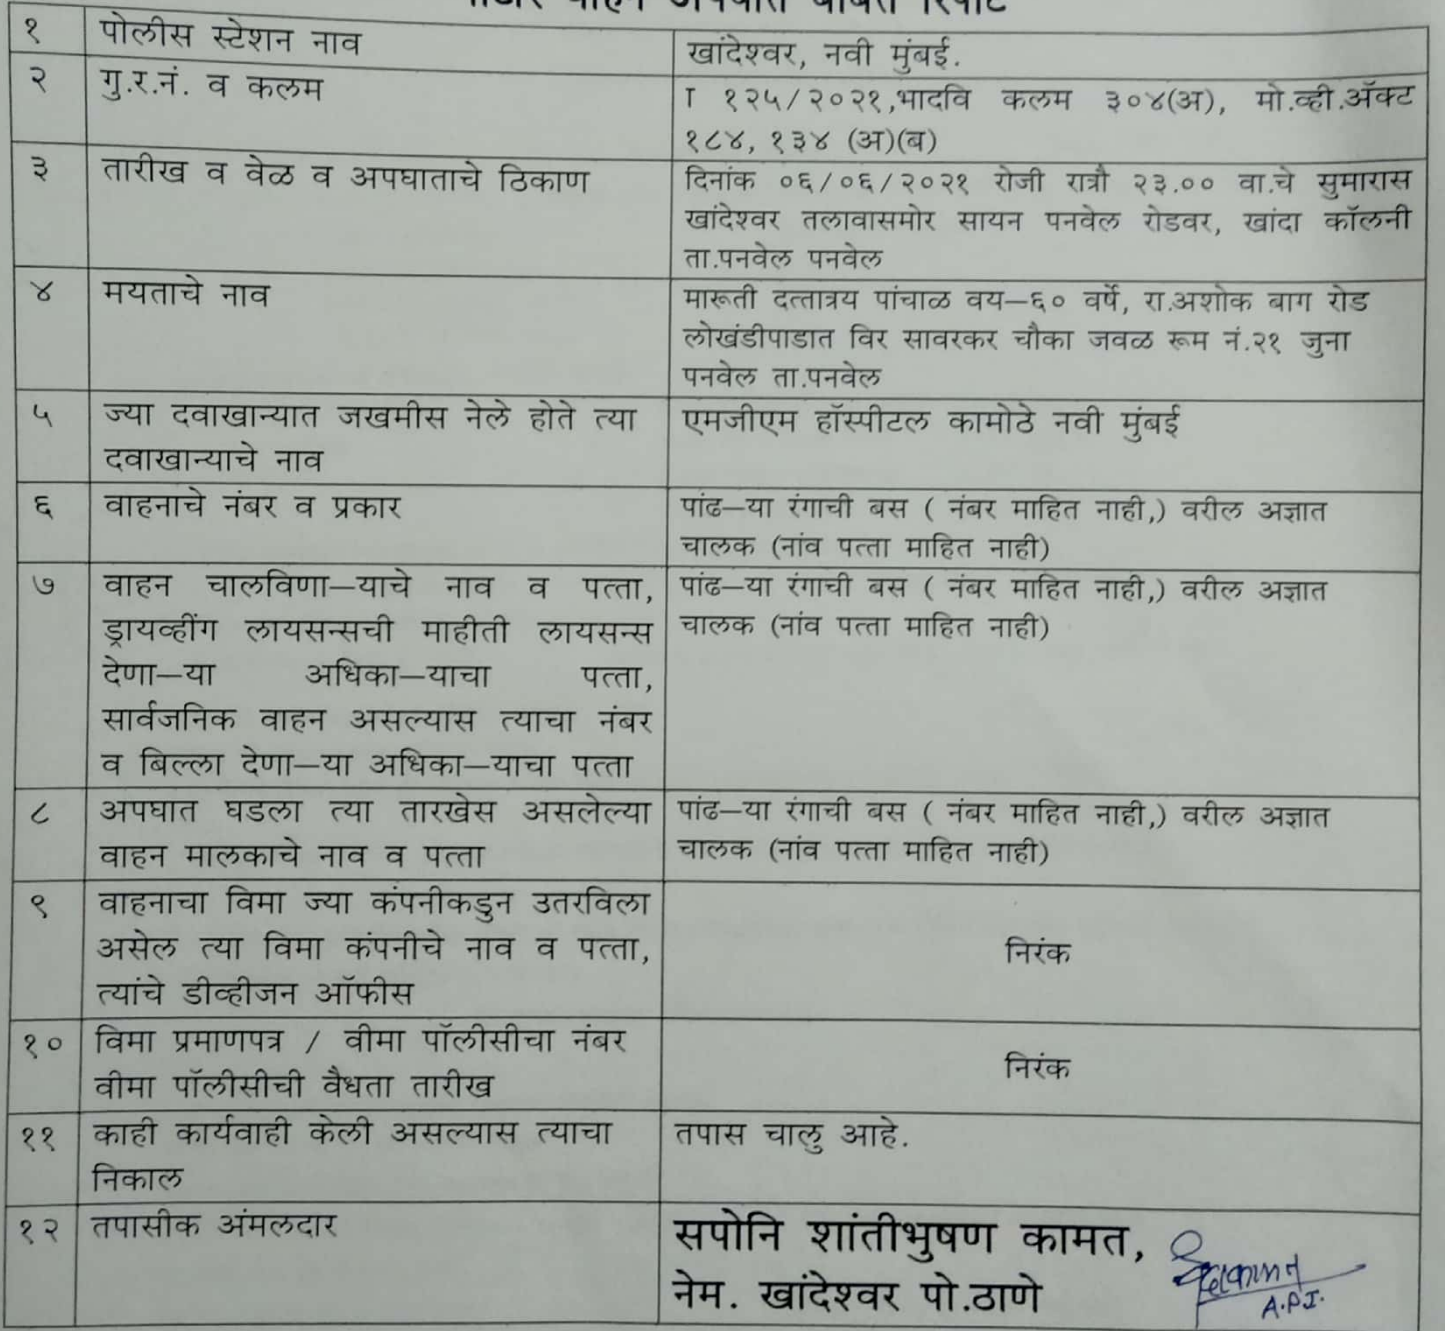 मोटार वाहन अपघात बाबत रिपोर्ट
१ पोलीस स्टेशन नाव
खांदेश्वर, नवी मुंबई.
२ गु.र.नं. व कलम
I १२५/२०२१,भादवि कलम ३०४(अ), मो.व्ही.ॲक्ट
१८४, १३४ (अ)(ब)
३ तारीख व वेळ व अपघाताचे ठिकाण
दिनांक ०६/०६/२०२१ रोजी रात्रौ २३.०० वा.चे सुमारास
खांदेश्वर तलावासमोर सायन पनवेल रोडवर, खांदा कॉलनी
ता.पनवेल पनवेल
४ मयताचे नाव
मारूती दत्तात्रय पांचाळ वय–६० वर्षे, रा.अशोक बाग रोड
लोखंडीपाडात विर सावरकर चौका जवळ रूम नं.२१ जुना
पनवेल ता.पनवेल
५ ज्या दवाखान्यात जखमीस नेले होते त्या
दवाखान्याचे नाव
एमजीएम हॉस्पीटल कामोठे नवी मुंबई
६ वाहनाचे नंबर व प्रकार
पांढ–या रंगाची बस ( नंबर माहित नाही,) वरील अज्ञात
चालक (नांव पत्ता माहित नाही)
७ वाहन चालविणा–याचे नाव व पत्ता,
ड्रायव्हींग लायसन्सची माहीती लायसन्स
देणा–या अधिका–याचा पत्ता,
सार्वजनिक वाहन असल्यास त्याचा नंबर
व बिल्ला देणा–या अधिका–याचा पत्ता
पांढ–या रंगाची बस ( नंबर माहित नाही,) वरील अज्ञात
चालक (नांव पत्ता माहित नाही)
८ अपघात घडला त्या तारखेस असलेल्या
वाहन मालकाचे नाव व पत्ता
पांढ–या रंगाची बस ( नंबर माहित नाही,) वरील अज्ञात
चालक (नांव पत्ता माहित नाही)
९ वाहनाचा विमा ज्या कंपनीकडुन उतरविला
असेल त्या विमा कंपनीचे नाव व पत्ता,
त्यांचे डीव्हीजन ऑफीस
निरंक
१० विमा प्रमाणपत्र / वीमा पॉलीसीचा नंबर
वीमा पॉलीसीची वैधता तारीख
निरंक
११ काही कार्यवाही केली असल्यास त्याचा
निकाल
तपास चालु आहे.
१२ तपासीक अंमलदार
सपोनि शांतीभुषण कामत,
नेम. खांदेश्वर पो.ठाणे
A.P.I.